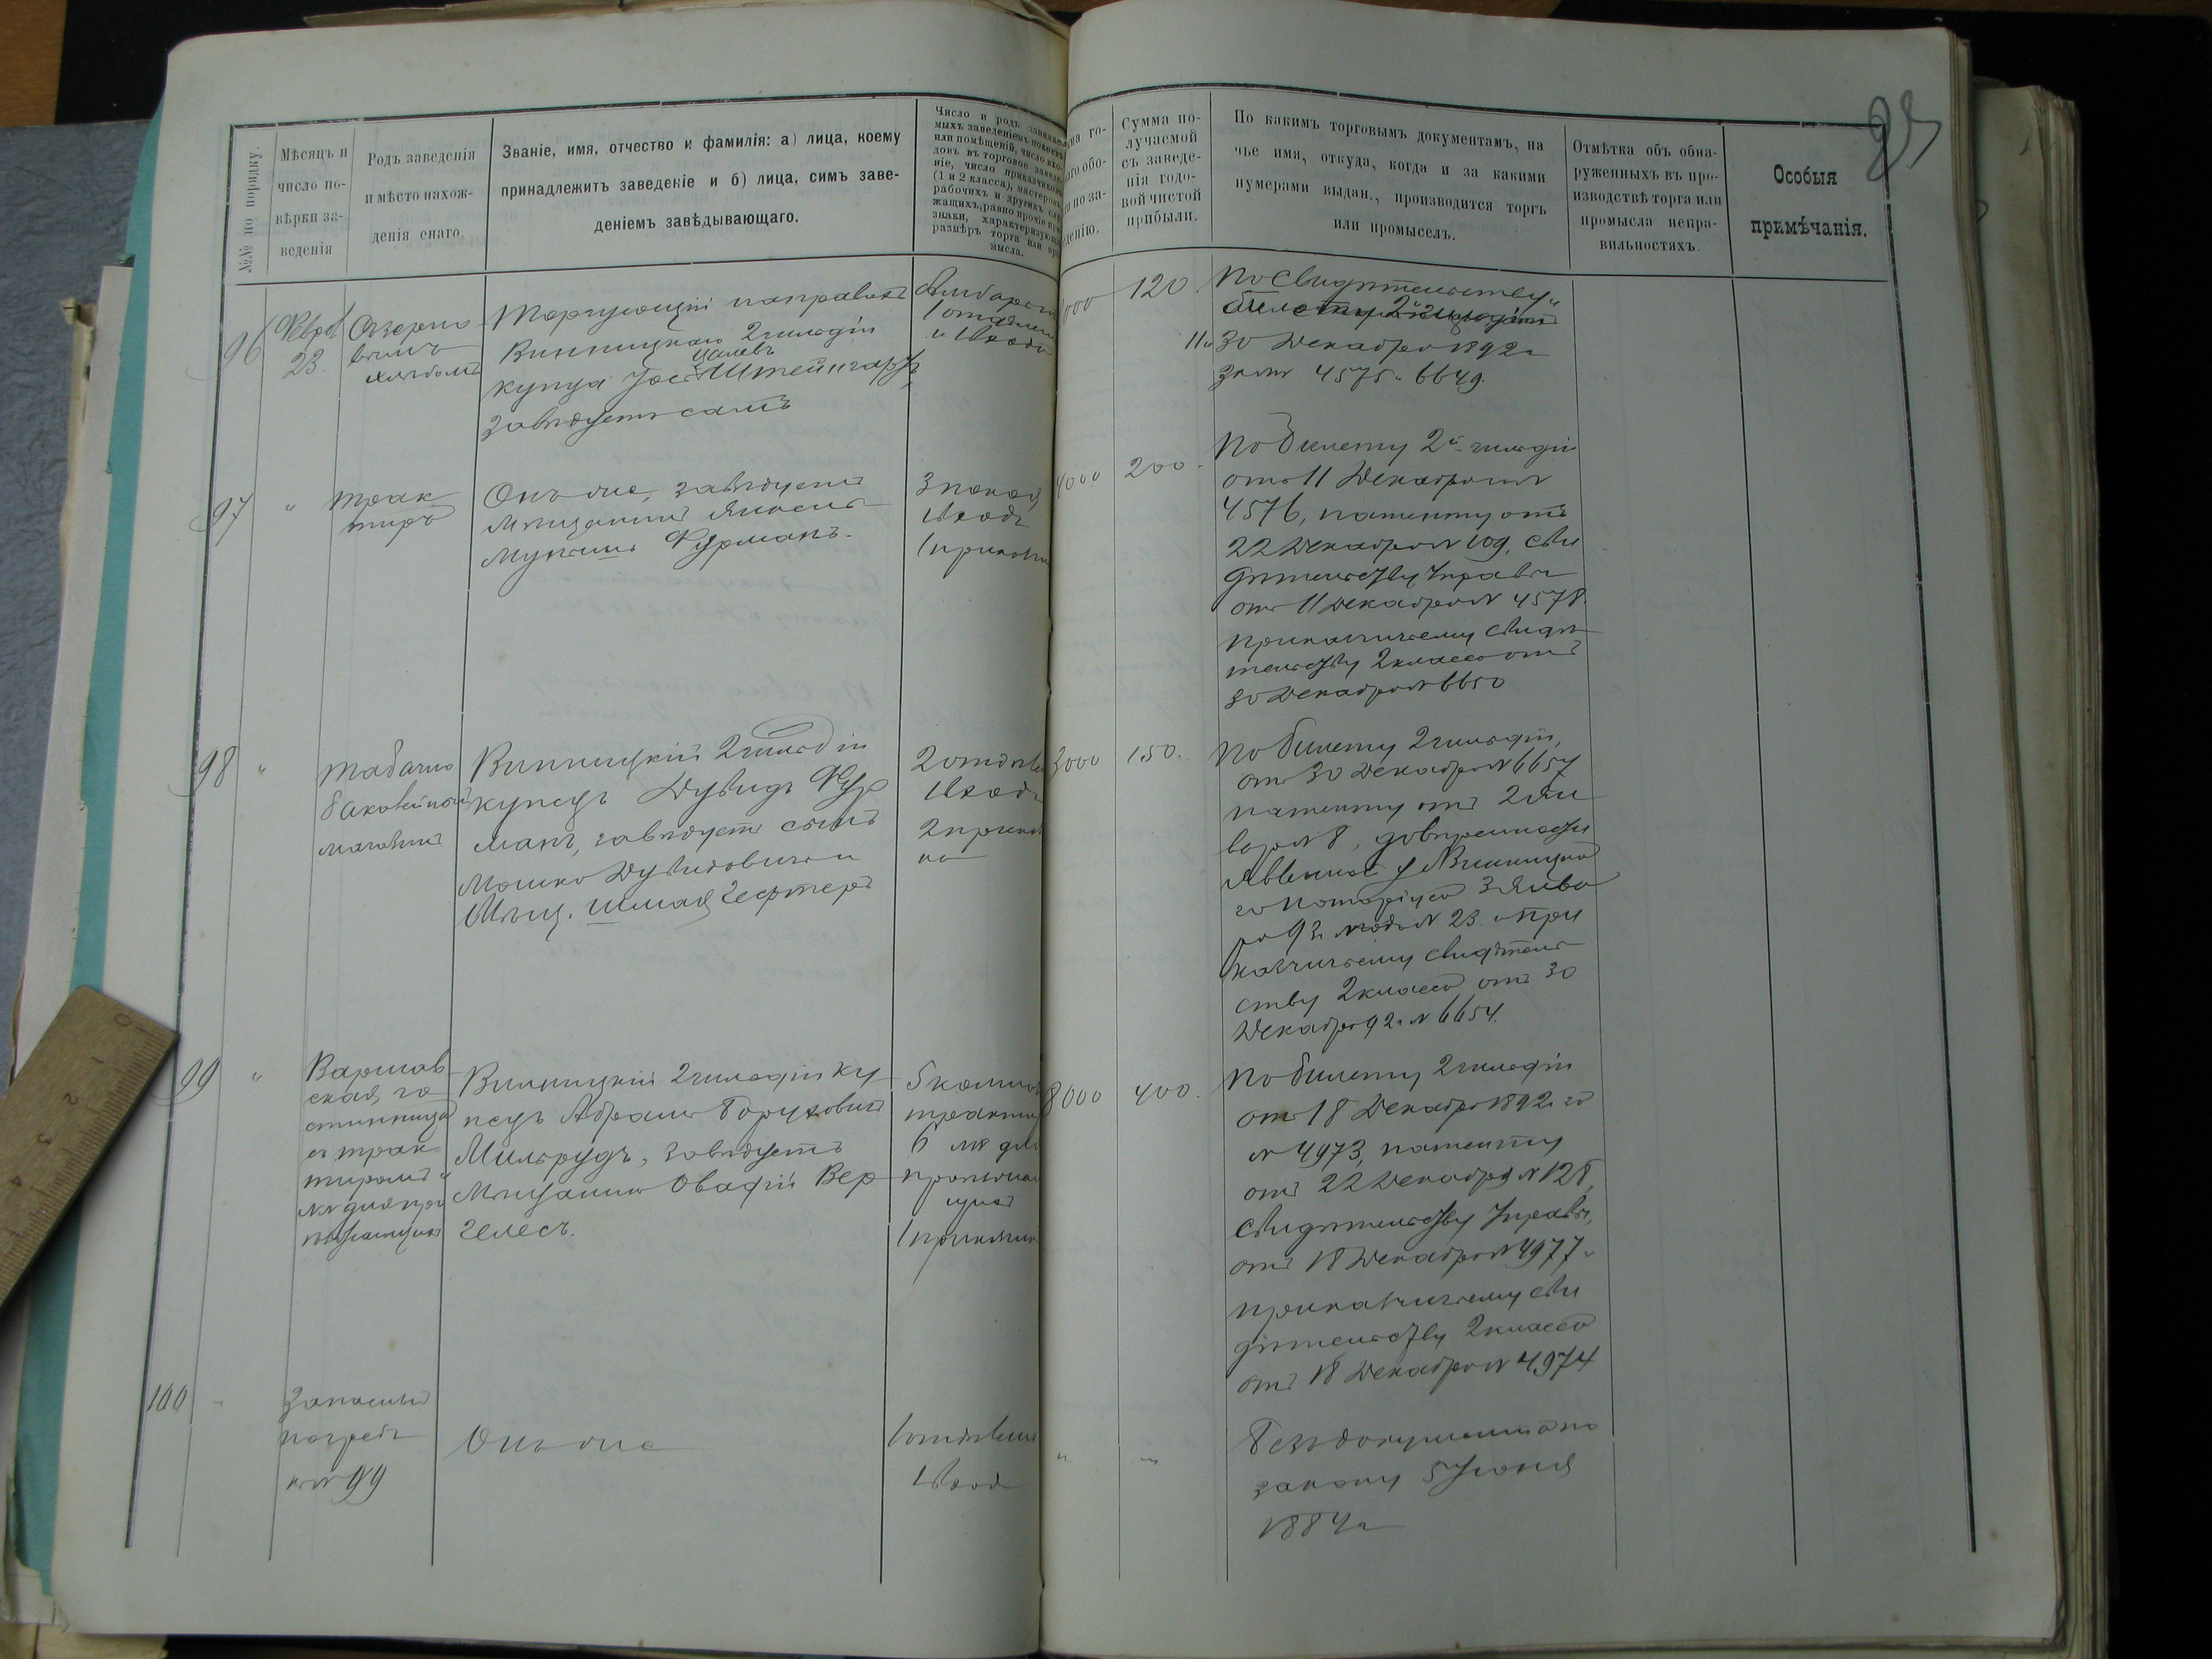 95
№№ по порядку.
Мѣсяцъ и
число по-
вѣрки за-
веденія
Родъ заведенія
и мѣсто нахож-
денія онаго.
Званіе, имя, отчество и фамилія: а) лица, коему
принадлежитъ заведеніе и б) лица, симъ заве-
деніемъ завѣдывающаго.
Число и родъ
мыхъ заведеніемъ покоевъ
или помѣщеній, число вхо-
довъ въ торговое заведе-
ніе, число приказчиковъ
(1 и 2 класса), мастеровъ,
рабочихъ и другихъ слу-
жащихъ, равно прочіе при-
знаки, характеризующіе
размѣръ торга или про-
мысла.
Сумма по-
лучаемой
съ заведе-
нія годо-
вой чистой
прибыли.
По какимъ торговымъ документамъ, на
чье имя, откуда, когда и за какими
нумерами выдан., производится торгъ
или промыселъ.
Отмѣтка объ обна-
руженныхъ въ про-
изводствѣ торга или
промысла непра-
вильностяхъ.
Особыя
примѣчанія.
96
Февр
23.
хлѣбомъ
Торгующій направахъ
Винницкаго 2 гильдіи
купца Іос Штейнгарцъ,
завѣдуетъ самъ
и 1 входъ
000
120.
По свидѣтельству и
билету 2й гильдіи
11 и 30 Декабря 1892 г
за №№ 4575 и 6649.
97
"
Трак
тиръ
Онъ же, завѣдуетъ
Мѣщанинъ
Фурманъ.
3 покоя
1 входъ
1 приказч
4000
200.
По билету 2й гильдіи
отъ 11 Декабря №
4576, патенту отъ
22 Декабря № 109, сви
дѣтельству Управы
отъ 11 Декабря № 4578.
приказчичьему свидѣ
тельству 2 класса отъ
30 Декабря № 6650
98
"
Табачно
бакалейный
магазинъ
Винницкій 2 гильдіи
купецъ Дувидъ Фур
манъ, завѣдуетъ сынъ
Мошко Дувидовичъ и
Мѣщ. Шмая Гехтеръ
2 отдѣле
1 входъ
2 приказ
ка
3000
150.
По билету 2 гильдіи,
отъ 30 Декабря № 6657
патенту отъ 2 Ян
варя № 8, довѣренности
явленной у Винницка
го Нотаріуса 3 Янва
ря 93 года № 23. и При
казчичьему свидѣтель
ству 2 класса отъ 30
Декабря 92 г № 6654.
99
"
Варшав
ская го
стинница
съ трак
тиромъ и
№ для прі
ѣзжающихъ
Винницкій 2 гильдіи ку
пецъ Абрамъ Боруховичъ
Мильрудъ, завѣдуетъ
Мѣщанинъ Овадій Вер
гелесъ.
5 комнатъ
трактиръ
6 №№ для
1 приказчик
8000
400.
По билету 2 гильдіи
отъ 18 Декабря 1892 го
№ 4973, патенту
отъ 22 Декабря № 128,
Свидѣтельству Управы,
отъ 18 Декабря № 4977 и
приказчичьему сви
дѣтельству 2 класса
отъ 18 Декабря № 4974
100
"
Запасный
погребъ
къ № 99
Онъ же
1 отдѣлені
1 входъ
"
"
Безъ документа по
закону 5 Іюня
1884 г